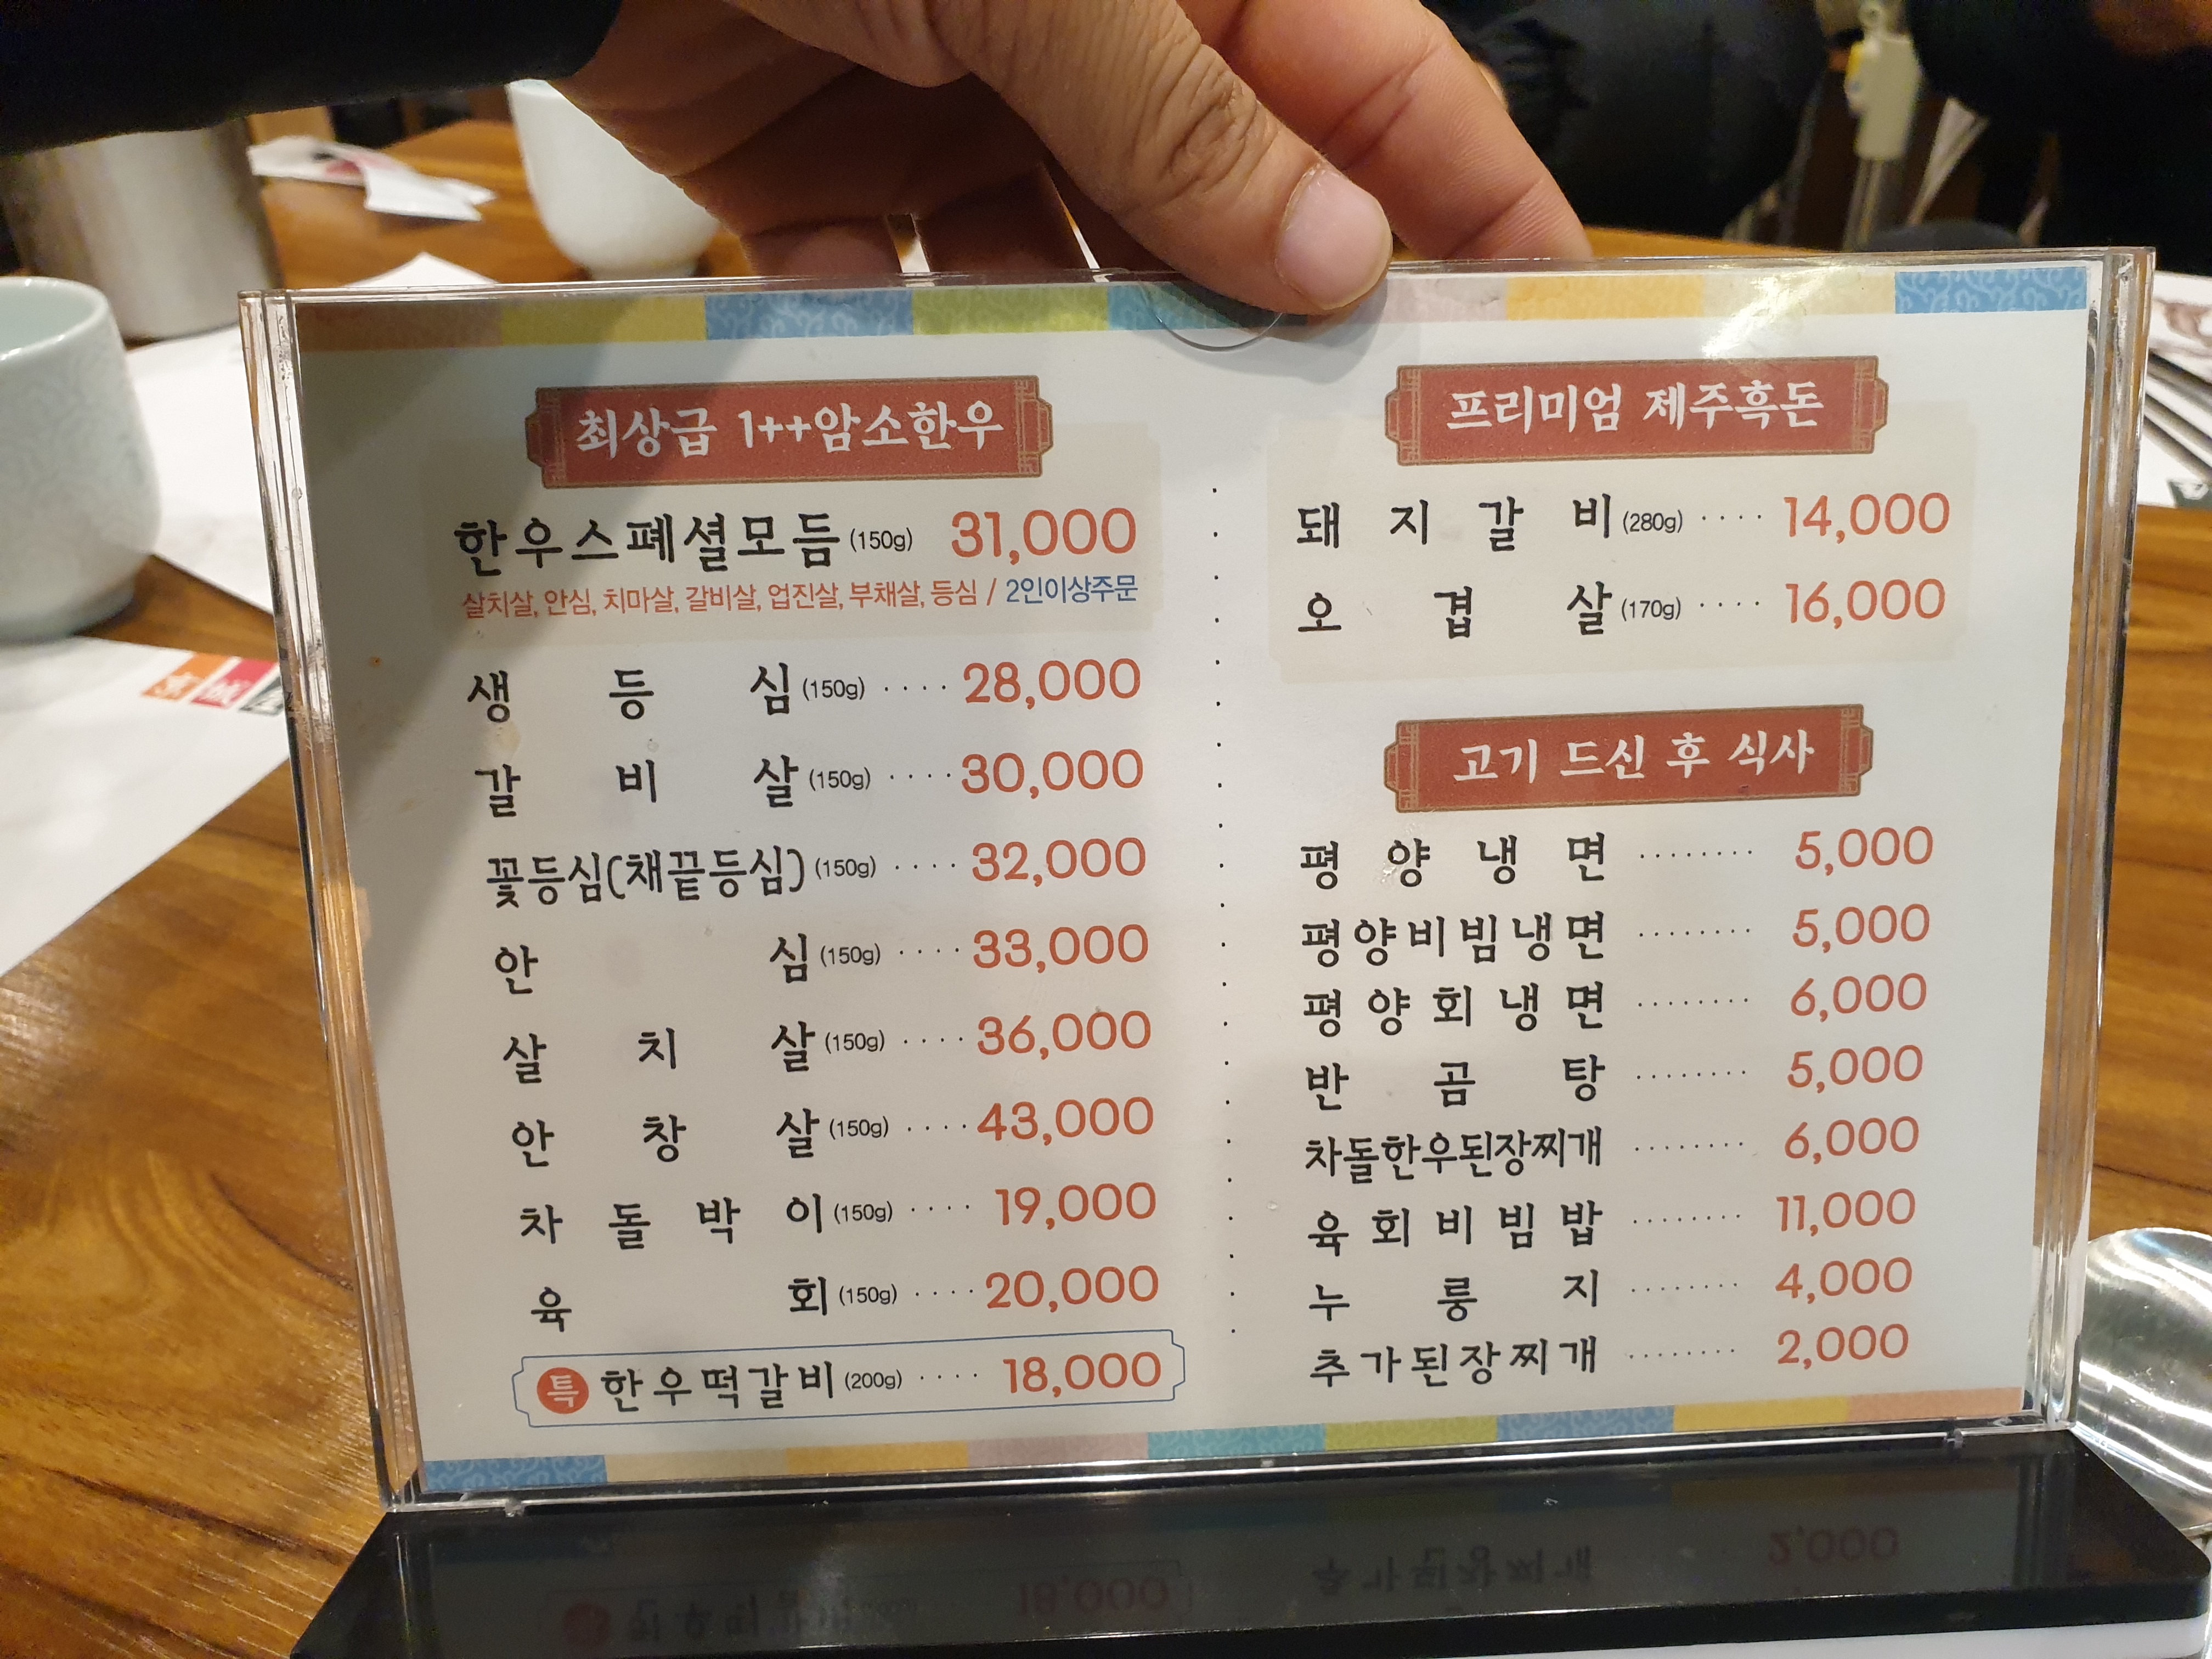 최상급 1++암소한우
한우스폐셜모듬 (150g) 31,000
살치살, 안심, 치마살, 갈비살, 업진살, 부채살, 등심 / 2인이상주문
생등심 (150g) ···· 28,000
갈비살 (150g) ···· 30,000
꽃등심(채끝등심) (150g) ···· 32,000
안심 (150g) ···· 33,000
살치살 (150g) ···· 36,000
안창살 (150g) ···· 43,000
차돌박이 (150g) ···· 19,000
육회 (150g) ···· 20,000
특 한우떡갈비 (200g) ···· 18,000
프리미엄 제주흑돈
돼지갈비 (280g) ···· 14,000
오겹살 (170g) ···· 16,000
고기 드신 후 식사
평양냉면 ········ 5,000
평양비빔냉면 ········ 5,000
평양회냉면 ········ 6,000
반곰탕 ········ 5,000
차돌한우된장찌개 ········ 6,000
육회비빔밥 ········ 11,000
누룽지 ········ 4,000
추가된장찌개 ········ 2,000